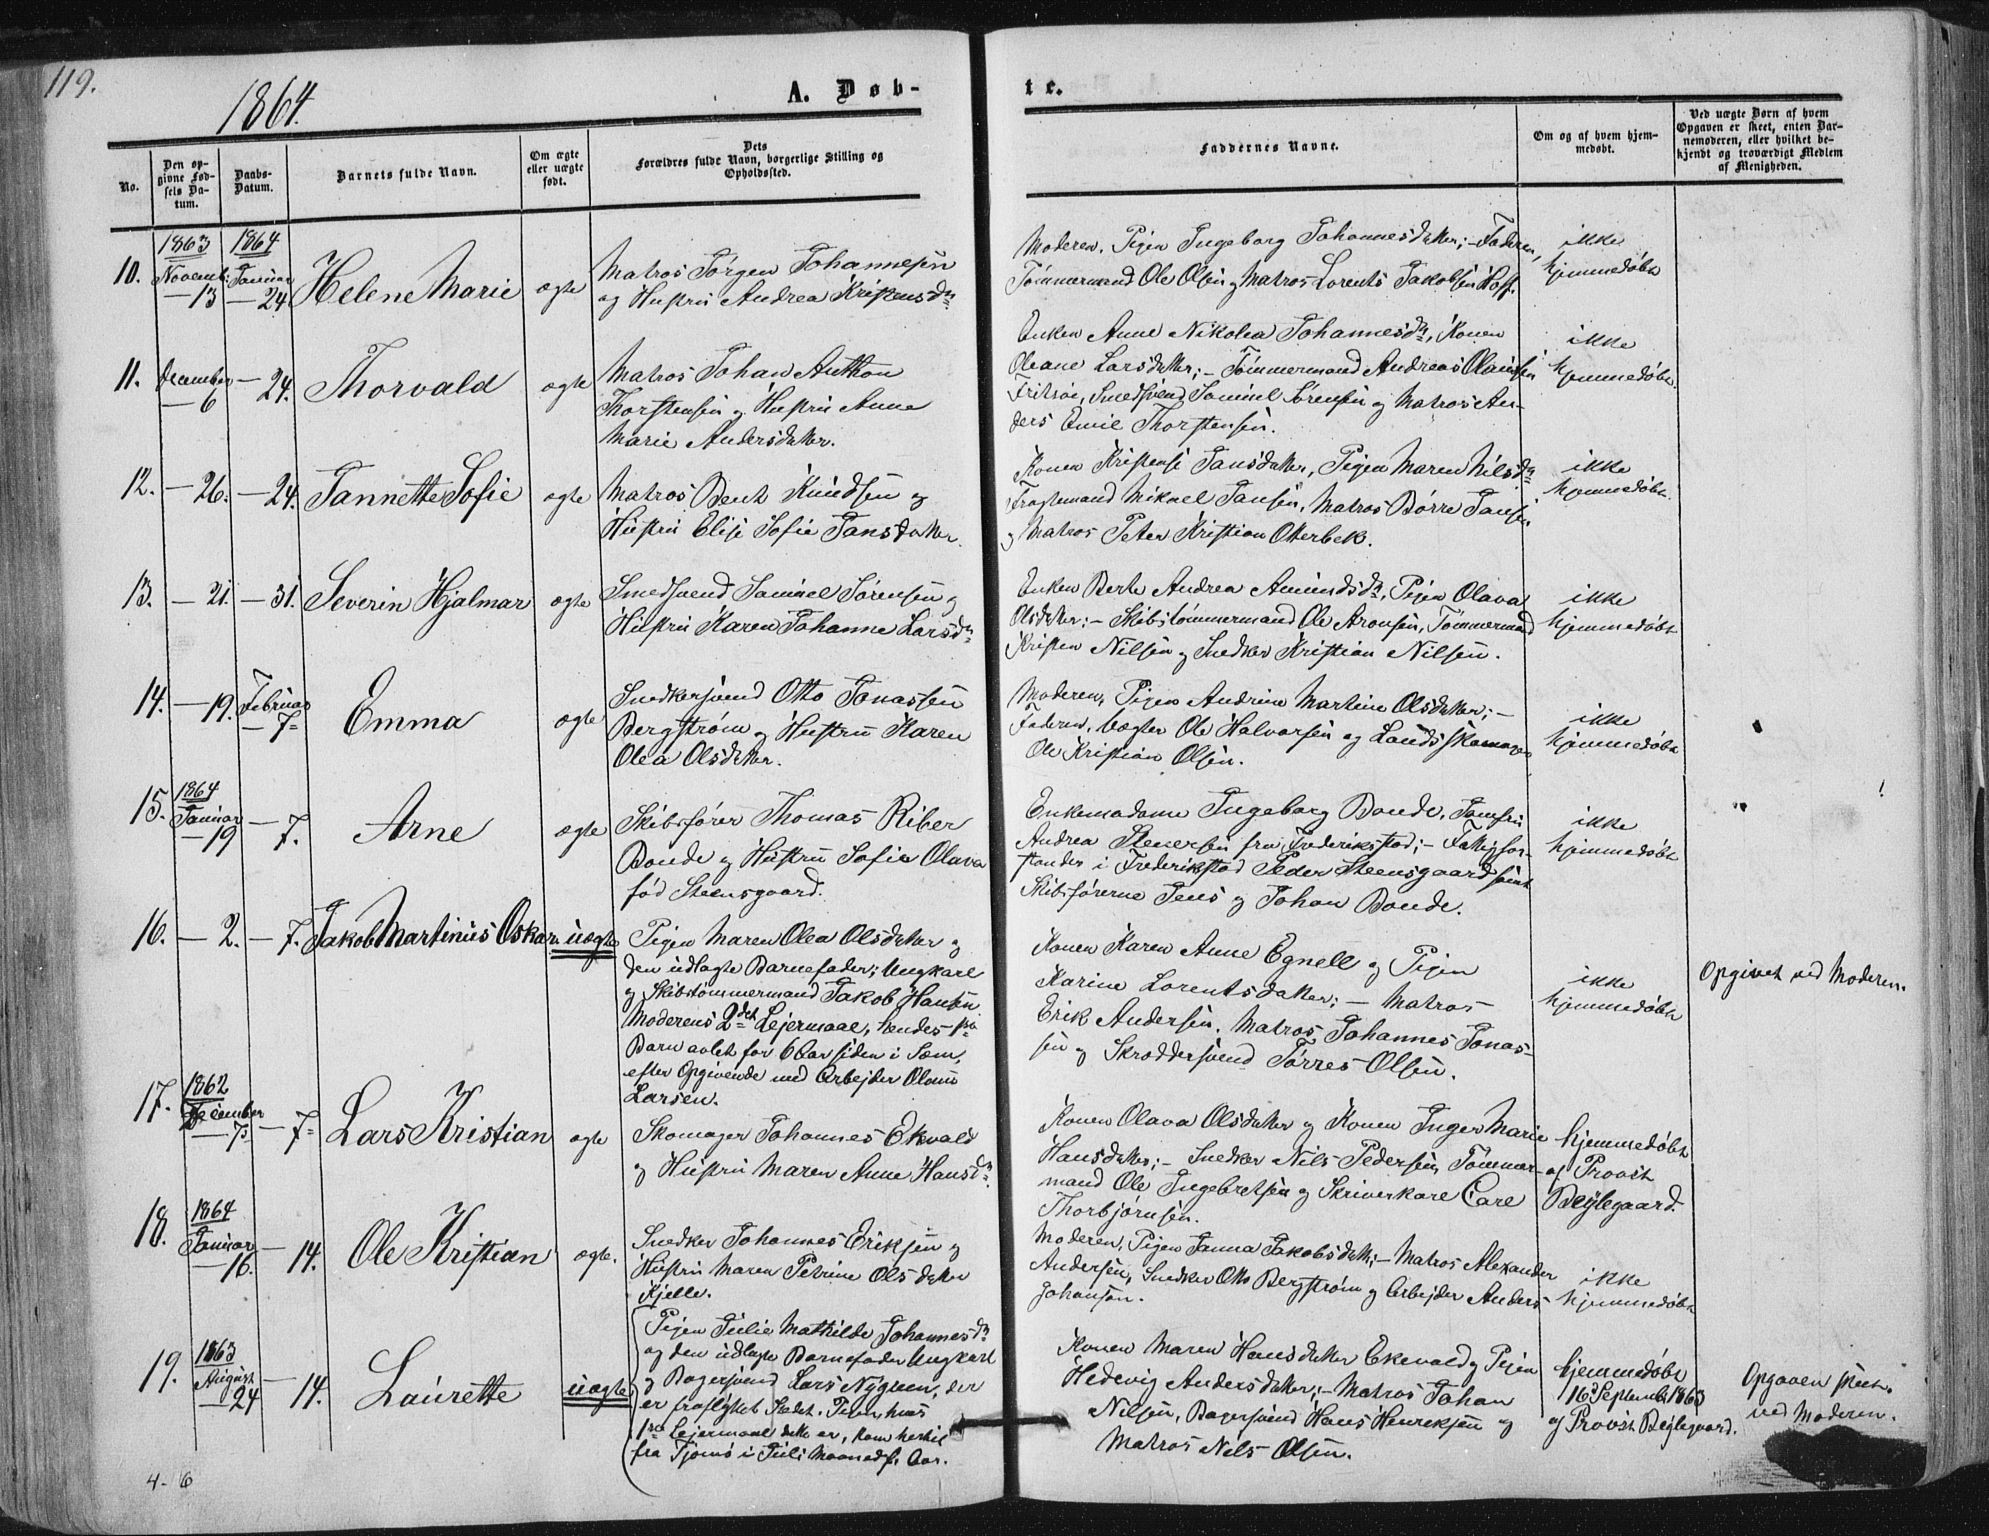 119.
1864.
A. Døb-
te.
No.
Den op-
givne Fød-
sels Da-
tum.
Daabs-
Datum.
Barnets fulde Navn.
Om ægte
eller uægte
født.
Dets
Forældres fulde Navn, borgerlige Stilling og
Opholdssted.
Faddernes Navne.
Om og af hvem hjem-
medøbt.
Ved uægte Børn af hvem
Opgaven er skeet, enten Bar-
nemoderen, eller hvilket be-
kjendt og troværdigt Medlem
af Menigheden.
10.
1863
Novemb.
— 13
1864
Januar
— 24.
Helene Marie
ægte
Matros Jørgen Johannesen
og Hustru Andrea Kristensdr
Moderen, Pigen Ingeborg Johannesdatter; - Faderen,
Tømmermand Ole Olsen og Matros Lorents Jakobsen Hoff.
ikke
hjemmedøbt
11.
December
— 6
— 24.
Thorvald
ægte
Matros Johan Anthon
Thorstensen og Hustru Anne
Marie Andersdatter.
Enken Anne Nikolea Johannesdr, Konen
Oleane Larsdatter; - Tømmermand Andreas Olausen
Smedsvend Samuel Sørensen og Matros An-
ders Emil Thorstensen.
ikke
hjemmedøbt.
12.
— 26.
— 24.
Jannette Sofie
ægte
Matros Bent Knudsen og
Hustru Elise Sofie Jansdatter.
Konen Kristense Jansdatter, Pigen Maren Nilsdr
Fragtemand Mikael Jansen, Matros Børre Jansen
og Matros Peter Kristian Otterbek.
ikke
hjemmedøbt.
13.
— 21.
— 31.
Severin Hjalmar
ægte
Smedsvend Samuel Sørensen og
Hustru Karen Johanne Larsdr
Enken Berte Andrea Amundsdr, Pigen Olava
Olsdatter; - Skibstømmermand Ole Aronsen, Tømmermand
Kristen Nilsen og Snedker Kristian Nilsen.
ikke
hjemmedøbt
14.
— 19.
Februar
— 7=
Emma
ægte
Snedkersvend Otto Jonassen
Bergstrøm og Hustru Karen
Olea Olsdatter.
Moderen, Pigen Andrine Martine Olsdatter; -
Faderen, Vægter Ole Halvorsen og Landsskomager
Ole Kristian Olsen.
ikke
hjemmedøbt
15.
1864
Januar
— 19
— 7.
Arne
ægte
Skibsfører Thomas Riber
Bonde og Hustru Sofie Olava
fød Steensgaard.
Enkemadame Ingeborg Bonde, Jomfru
Andrea Stenersen fra Frederikstad; - Fattigfor-
stander i Frederikstad Peder Steensgaard samt
Skibsførerne Jens og Johan Bonde.
ikke
hjemmedøbt
16.
— 2.
— 7.
Jakob Martinus Oskar.
uægte
Pigen Maren Olea Olsdatter og
den udlagte Barnefader; Ungkarl
og Skibstømmermand Jakob Hansen
Moderens 2det Leiermaal, hendes
Barn avlet for 6 Aar siden i Søm,
efter Opgivende med Arbejder Olaus
Larsen.
Konen Karen Anne Egnell og Pigen
Karine Lorentsdatter; - Matros
Erik Andersen, Matros Johannes Jonas-
sen og Skræddersvend Tørres Olsen.
ikke
hjemmedøbt
Opgivet ved Moderen.
17.
1862
December
— 7=
Lars Kristian
ægte
Skomager Johannes Ekvald
og Hustru Maren Anne Hansdr.
Konen Olava Olsdatter og Konen Inger Marie
Hansdatter; - Snedker Nils Pedersen, Tømmer-
mand Ole Ingebretsen og Skriverkarl Carl
Thorbjørnsen.
hjemmedøbt
af Provst
Bejlegaard.
18.
1864
Januar
— 16.
— 14.
Ole Kristian
ægte.
Snedker Johannes Eriksen og
Hustru Maren Petrine Olsdatter
Kjelle.
Moderen, Pigen Janna Jakobsdatt; - Matros Alexander
Andersen, Snedker Otto Bergstrøm og Arbejder Anders
Johansen.
ikke
hjemmedøbt
19.
1863
August
— 24
— 14.
Laurette
uægte
Pigen Julie Mathilde Johannesdr
og den udlagte Barnefader Ungkarl
og Bagersvend Lars Nygreen, der
er fraflyttet Stedet. Pigen, hvis
1ste Leiermaal dette er, kom hertil
fra Tjømø i Juli Maaned f. Aar.
Konen Maren Hansdatter Ekevald og Pigen
Hedevig Andersdatter; - Matros Johan
Nilsen, Bagersvend Hans Henriksen og
Matros Nils Olsen.
hjemmedøbt
16d September 1863
af Provst Bejlegaard.
Opgaven skeet
ved Moderen.
4-6